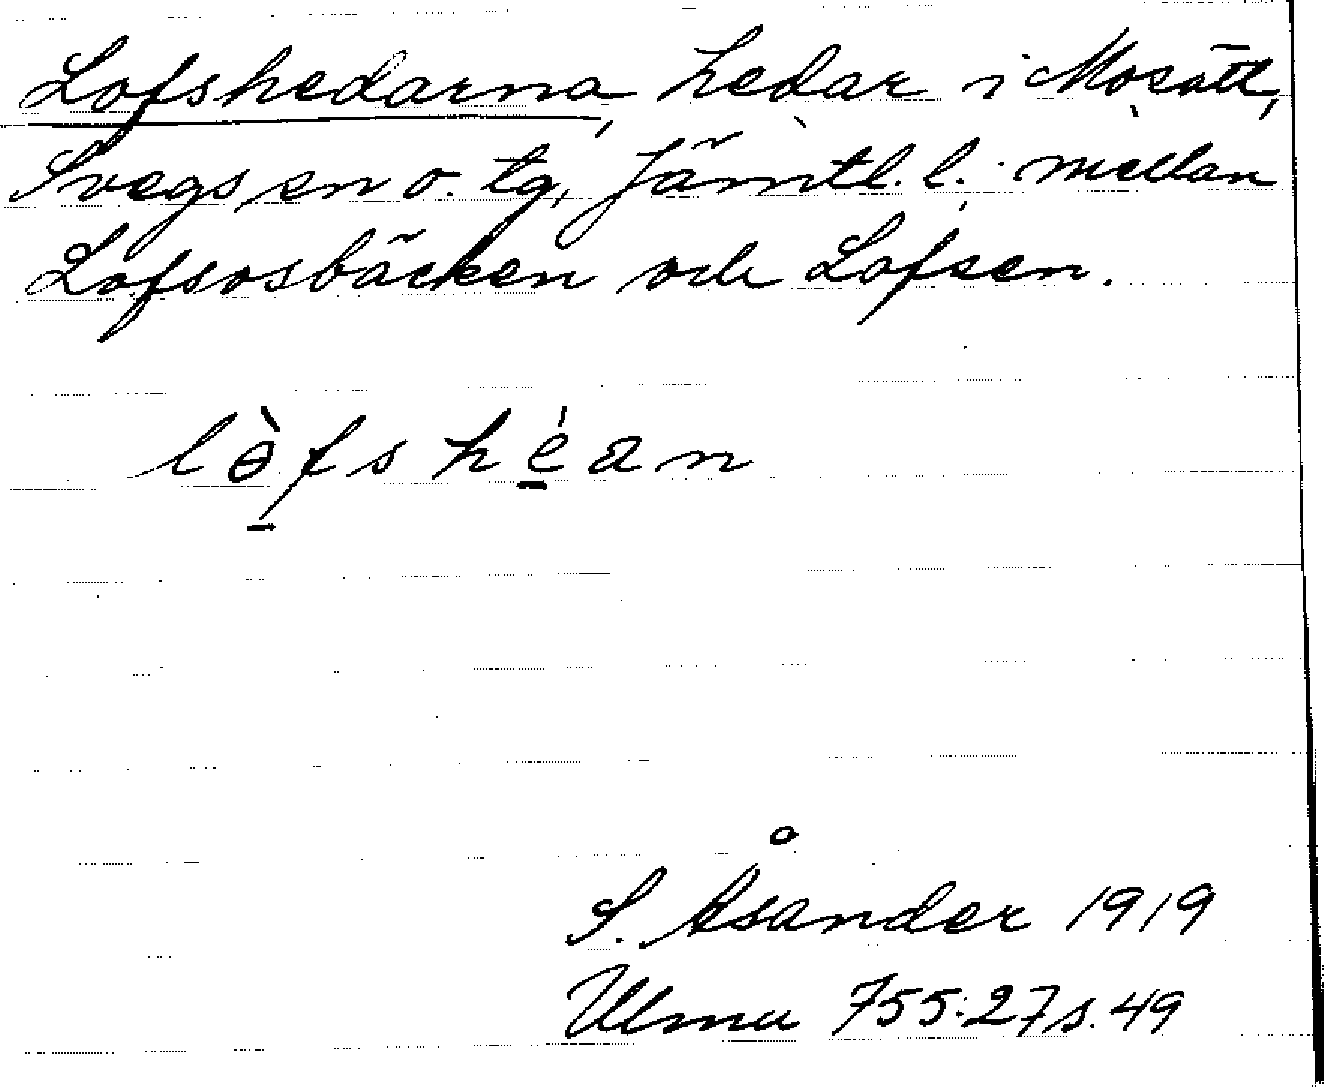 Lofshedarna, hedar i Mosätt,
Svegs sn o. tg, Jämtl. l. mellan
Lofsosbäcken och Lofsen.
lə̀fshéan
S. Åsander 1919
Ulma 755:27 s. 49